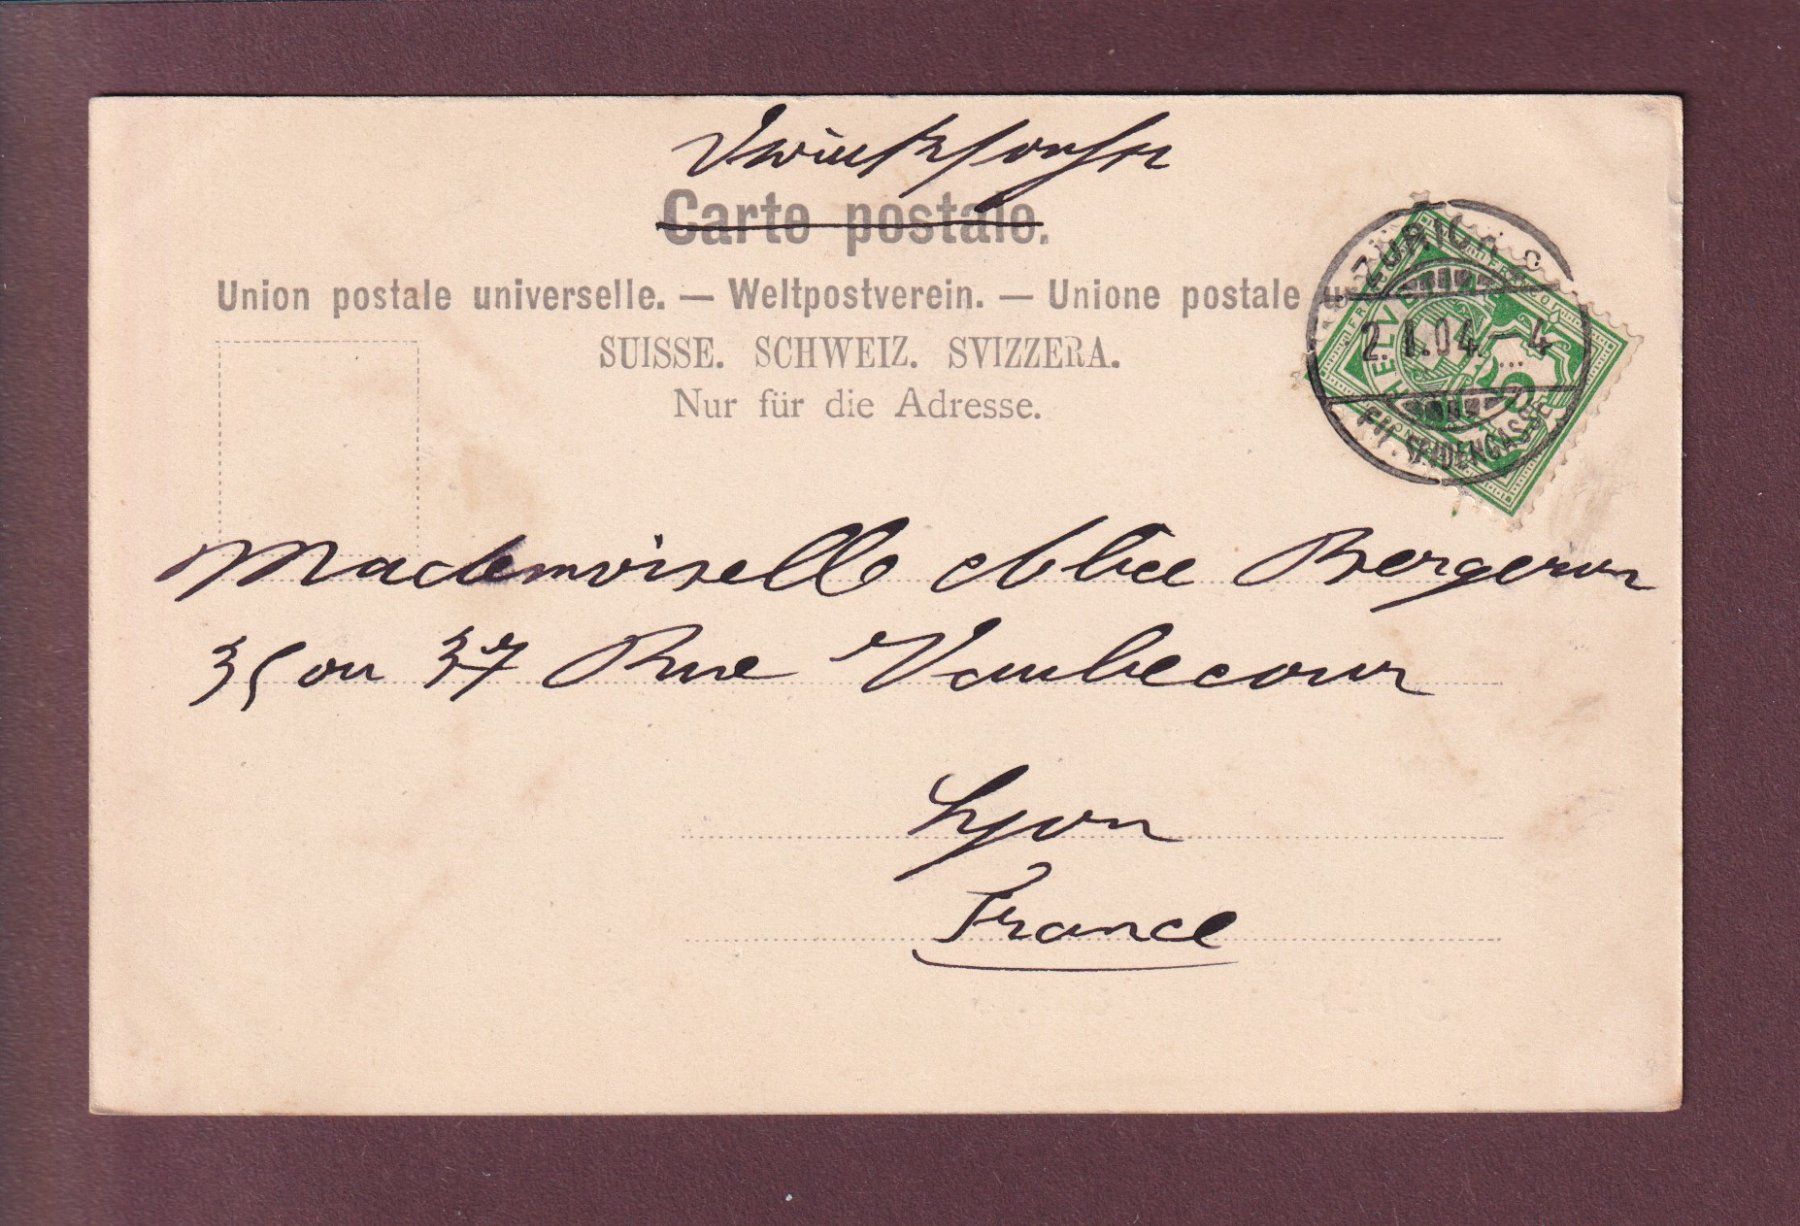 Drucksache
Carte postale.
Union postale universelle. — Weltpostverein. — Unione postale u
SUISSE. SCHWEIZ. SVIZZERA.
Nur für die Adresse.
ZÜRICH
2.I.04.–4
FIL. SEIDENGASSE
FRANCO
HELV
5
Mademoiselle Bergeron
35 ou 37 Rue Vaubecour
Lyon
France